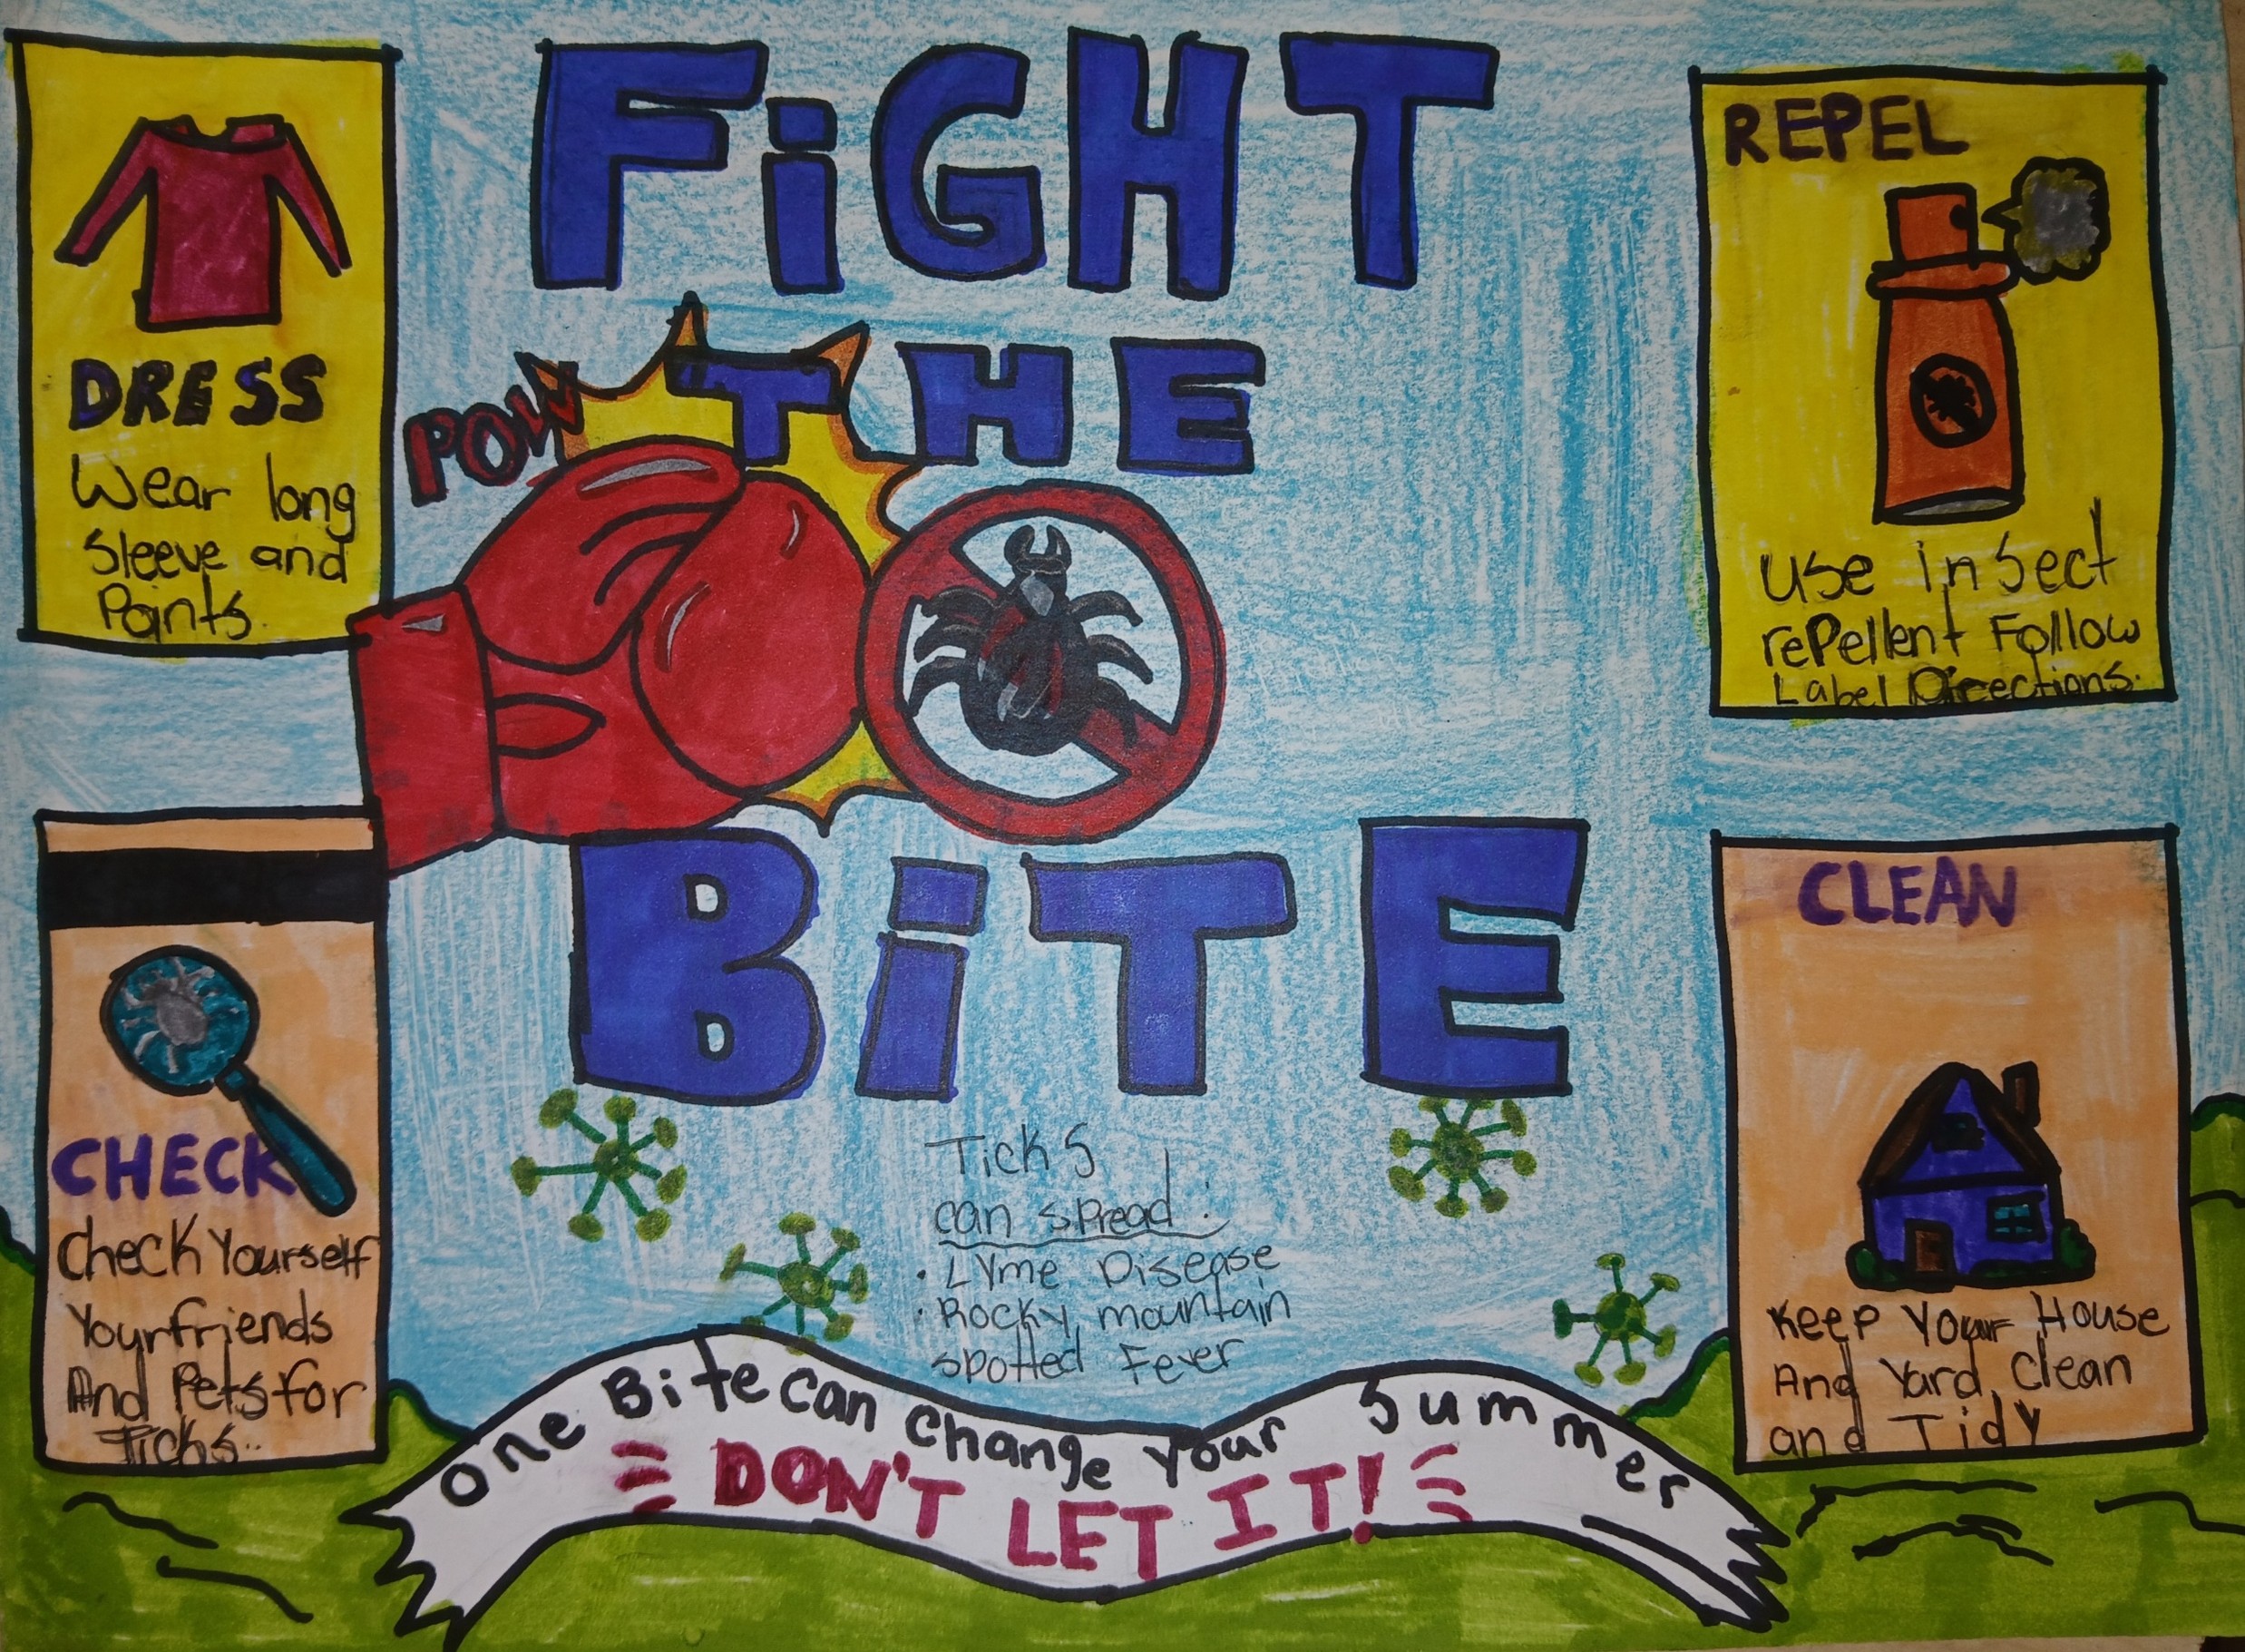 FiGHT
THE
BiTE
POW
DRESS
Wear long
Sleeve and
Pants.
REPEL
Use insect
rePellent Follow
Label Directions.
CHECK
Check Yourself
Your friends
And Pets for
Ticks..
CLEAN
Keep Your House
And Yard, Clean
and Tidy
Ticks
can spread:
• Lyme Disease
• Rocky mountain
spotted Fever
One Bite can change Your Summer
DON'T LET IT!